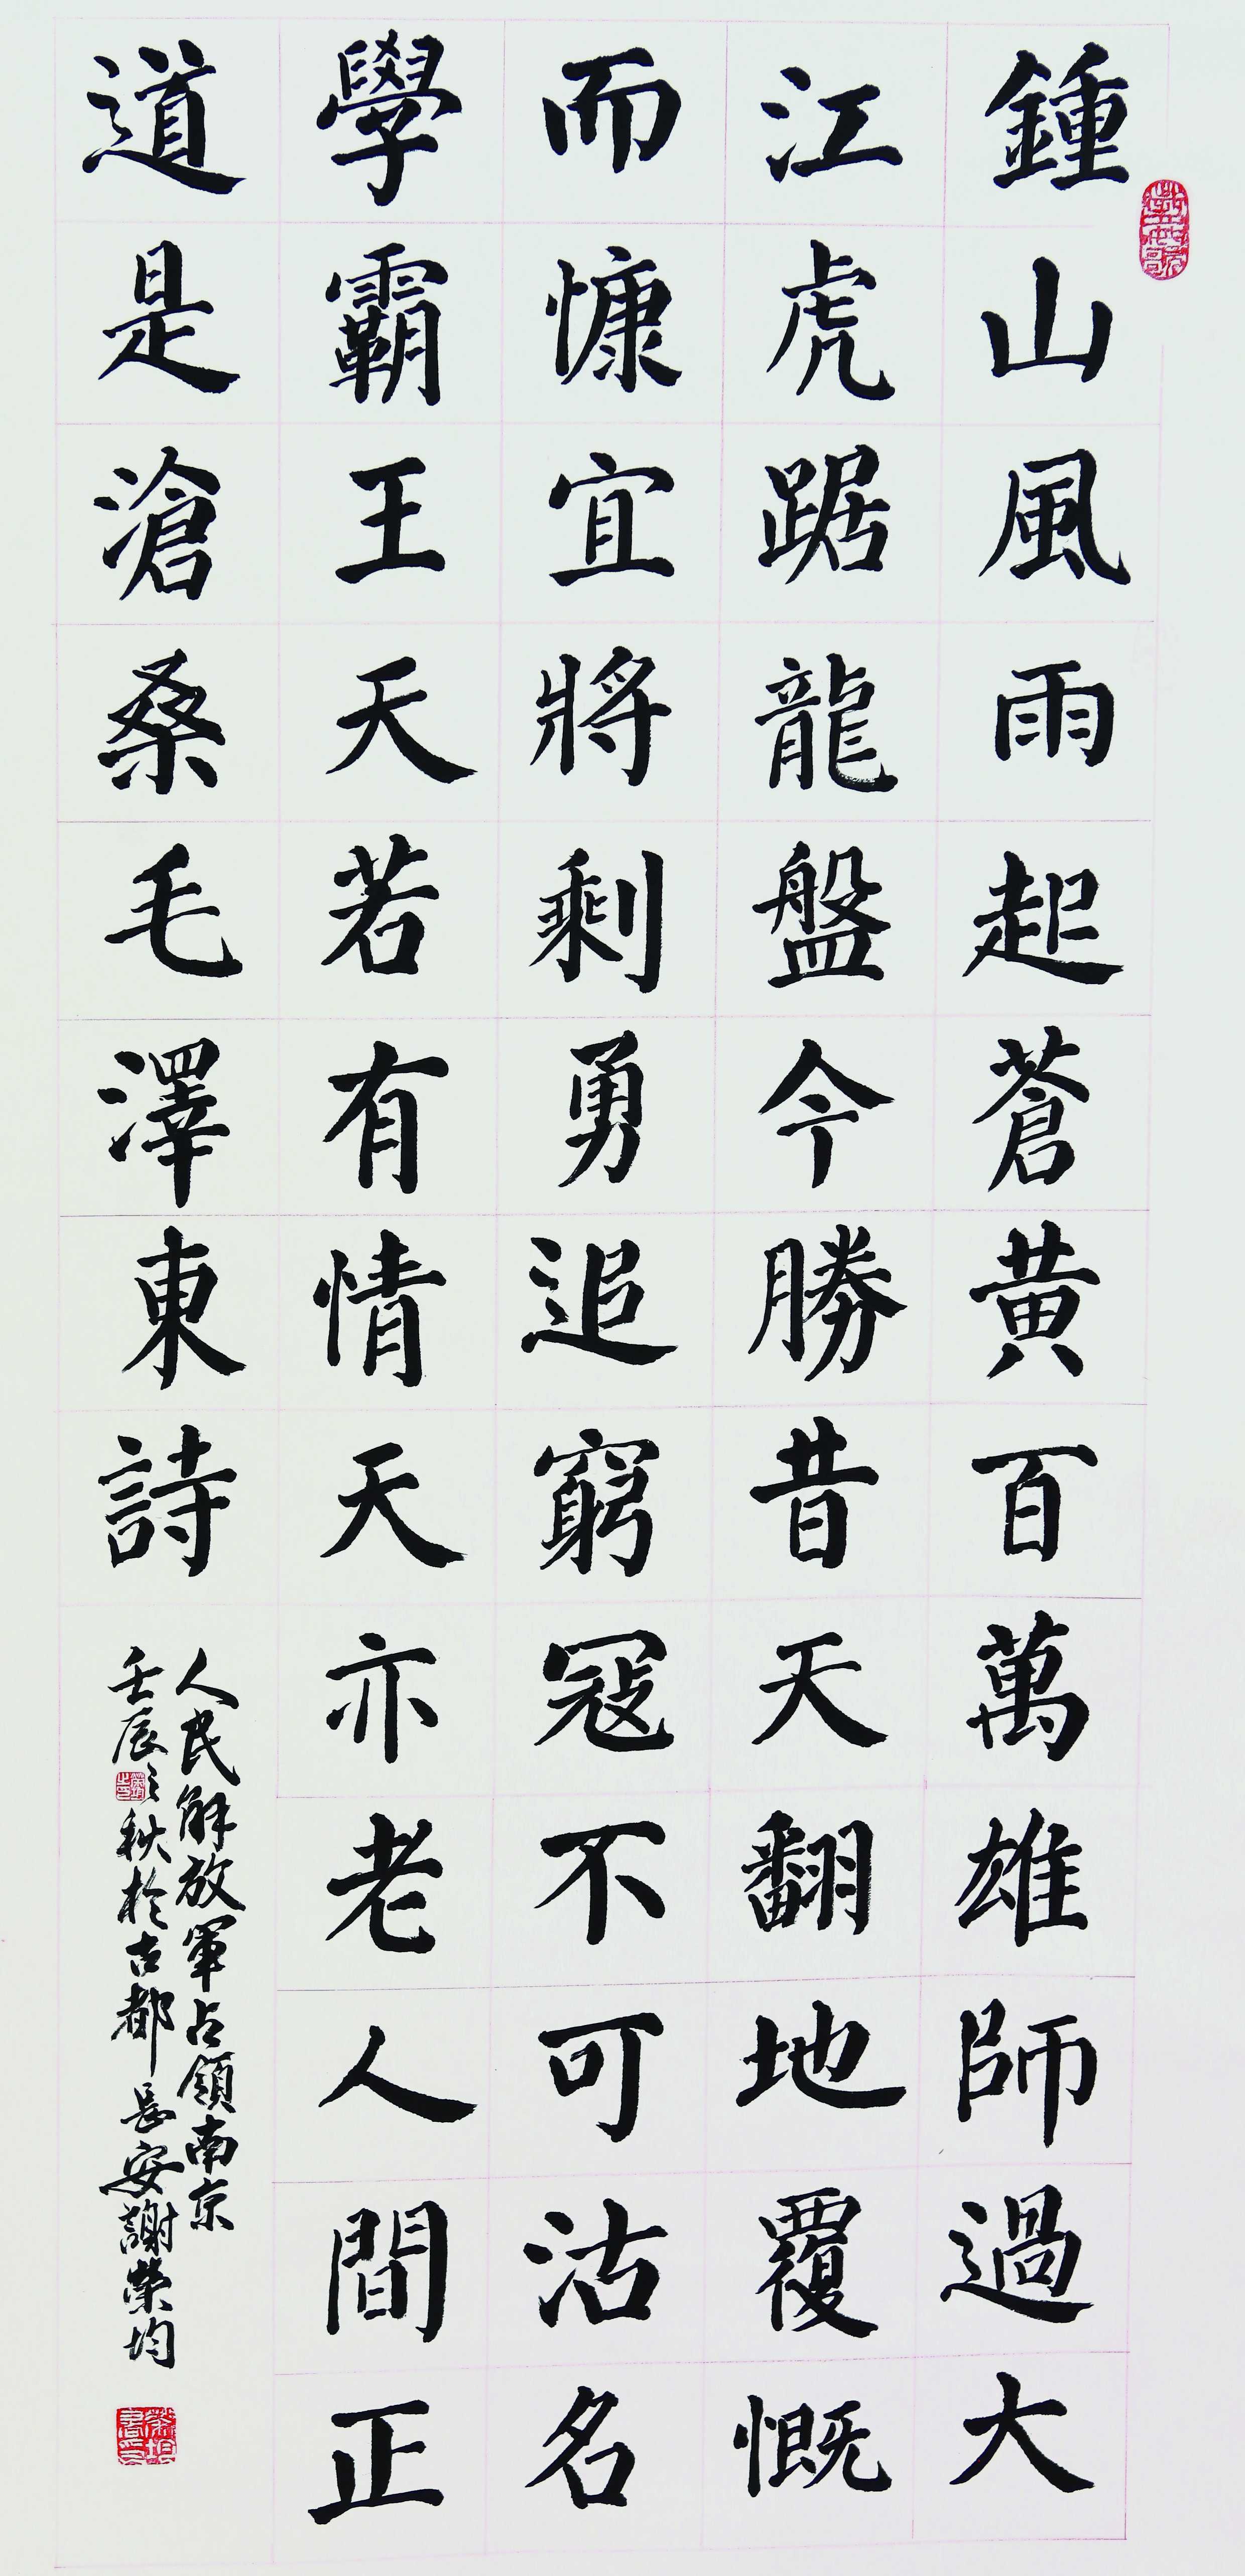 鍾山風雨起蒼黃百萬雄師過大
江虎踞龍盤今勝昔天翻地覆慨
而慷宜將剩勇追窮寇不可沽名
學霸王天若有情天亦老人間正
道是滄桑毛澤東詩
人民解放軍占領南京
壬辰之秋於古都長安謝榮均